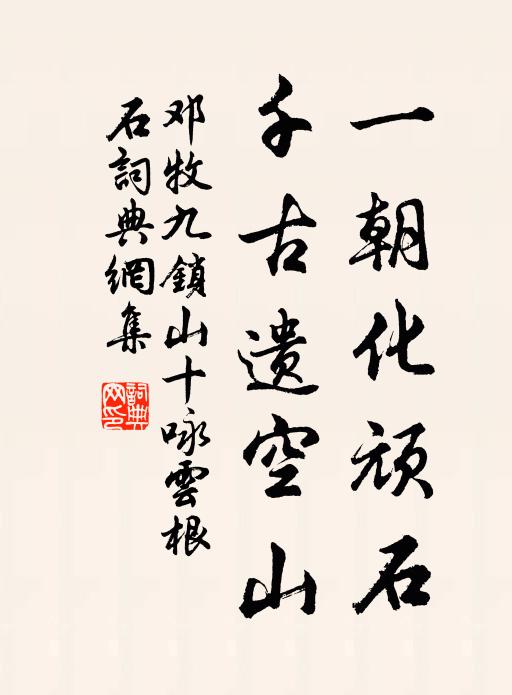 一朝化顽石
千古遗空山
邓牧九鎖山十咏雲根
石詞典網集
詞典
网印